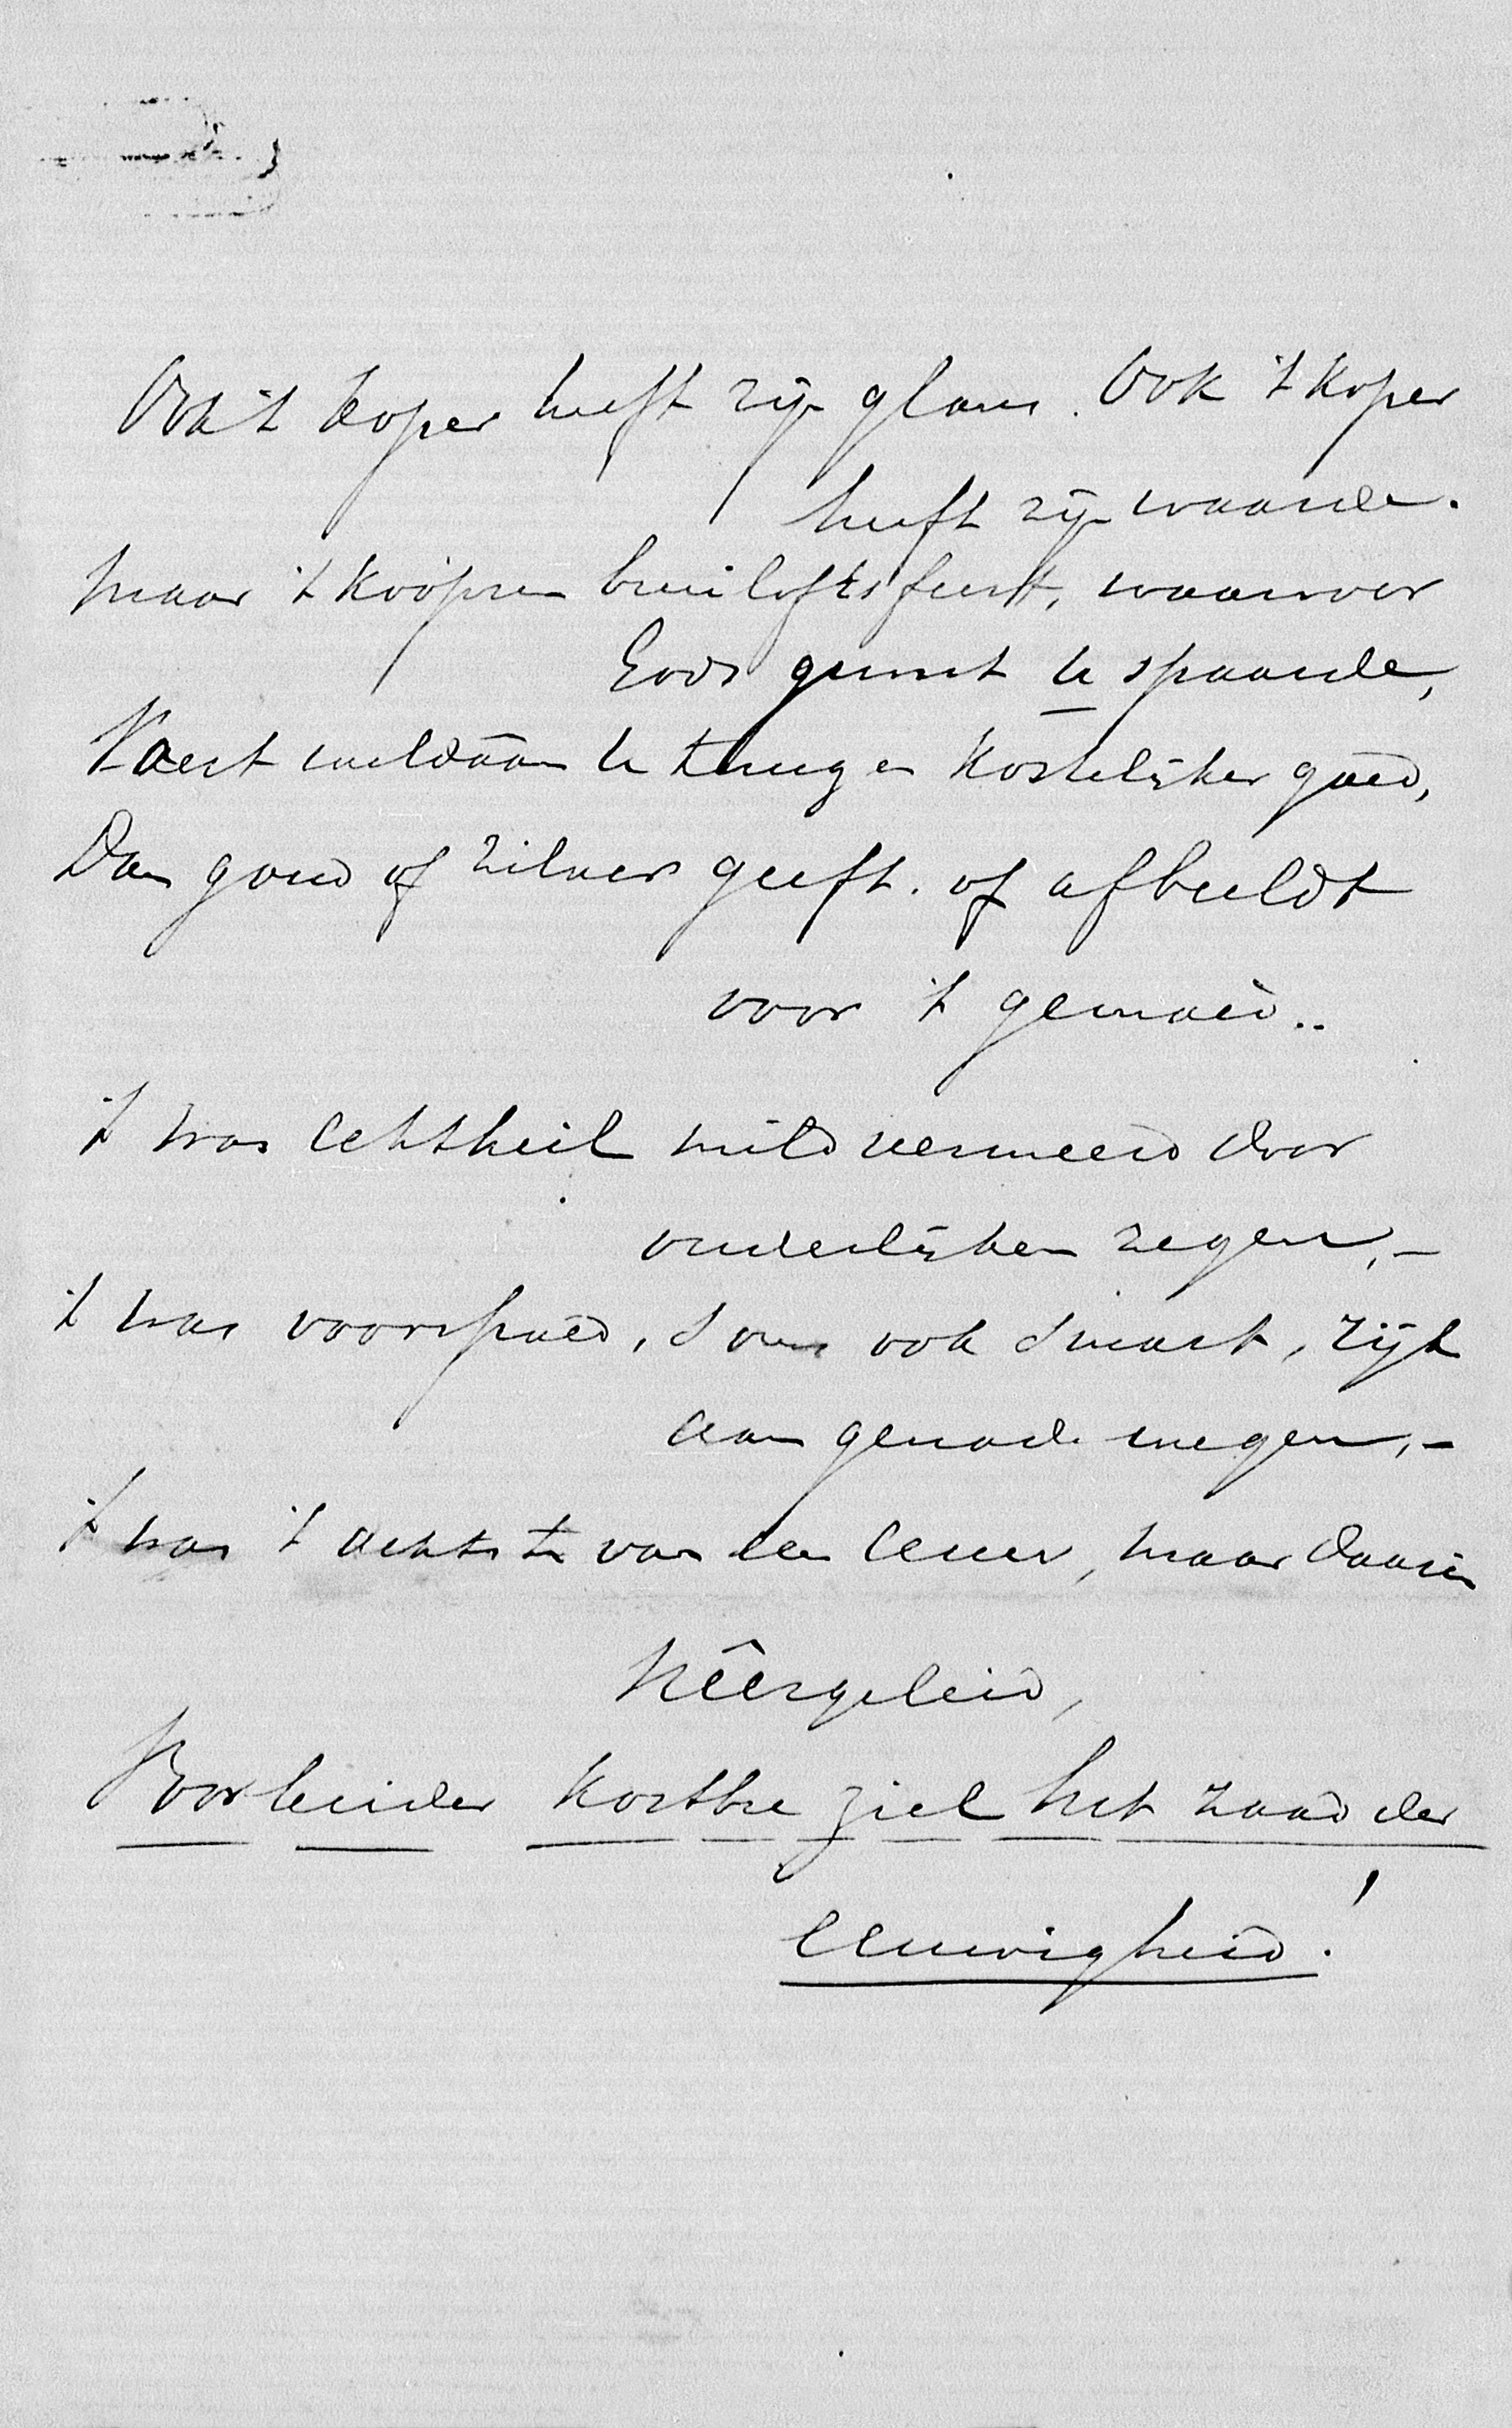 Ook 't koper heeft zijn glans. Ook 't koper
heeft zijn waarde.
Maar 't koopren bruiloftsfeest, waarvoor
Gods gunst u spaarde,
Voert weldaân u terug en kostelijker goed,
Dan goud of zilver geeft. of afbeeldt
voor 't gemoed..
't was echtheil mild vermeerd door
ouderlijken zegen,–
't was voorspoed, 't was ook smart, rijk
aan genade wegen,–
't was 't achtste van een eeuw, maar daarin
neêrgeleid,
Voor beider kostbre ziel het zaad der
eeuwigheid!